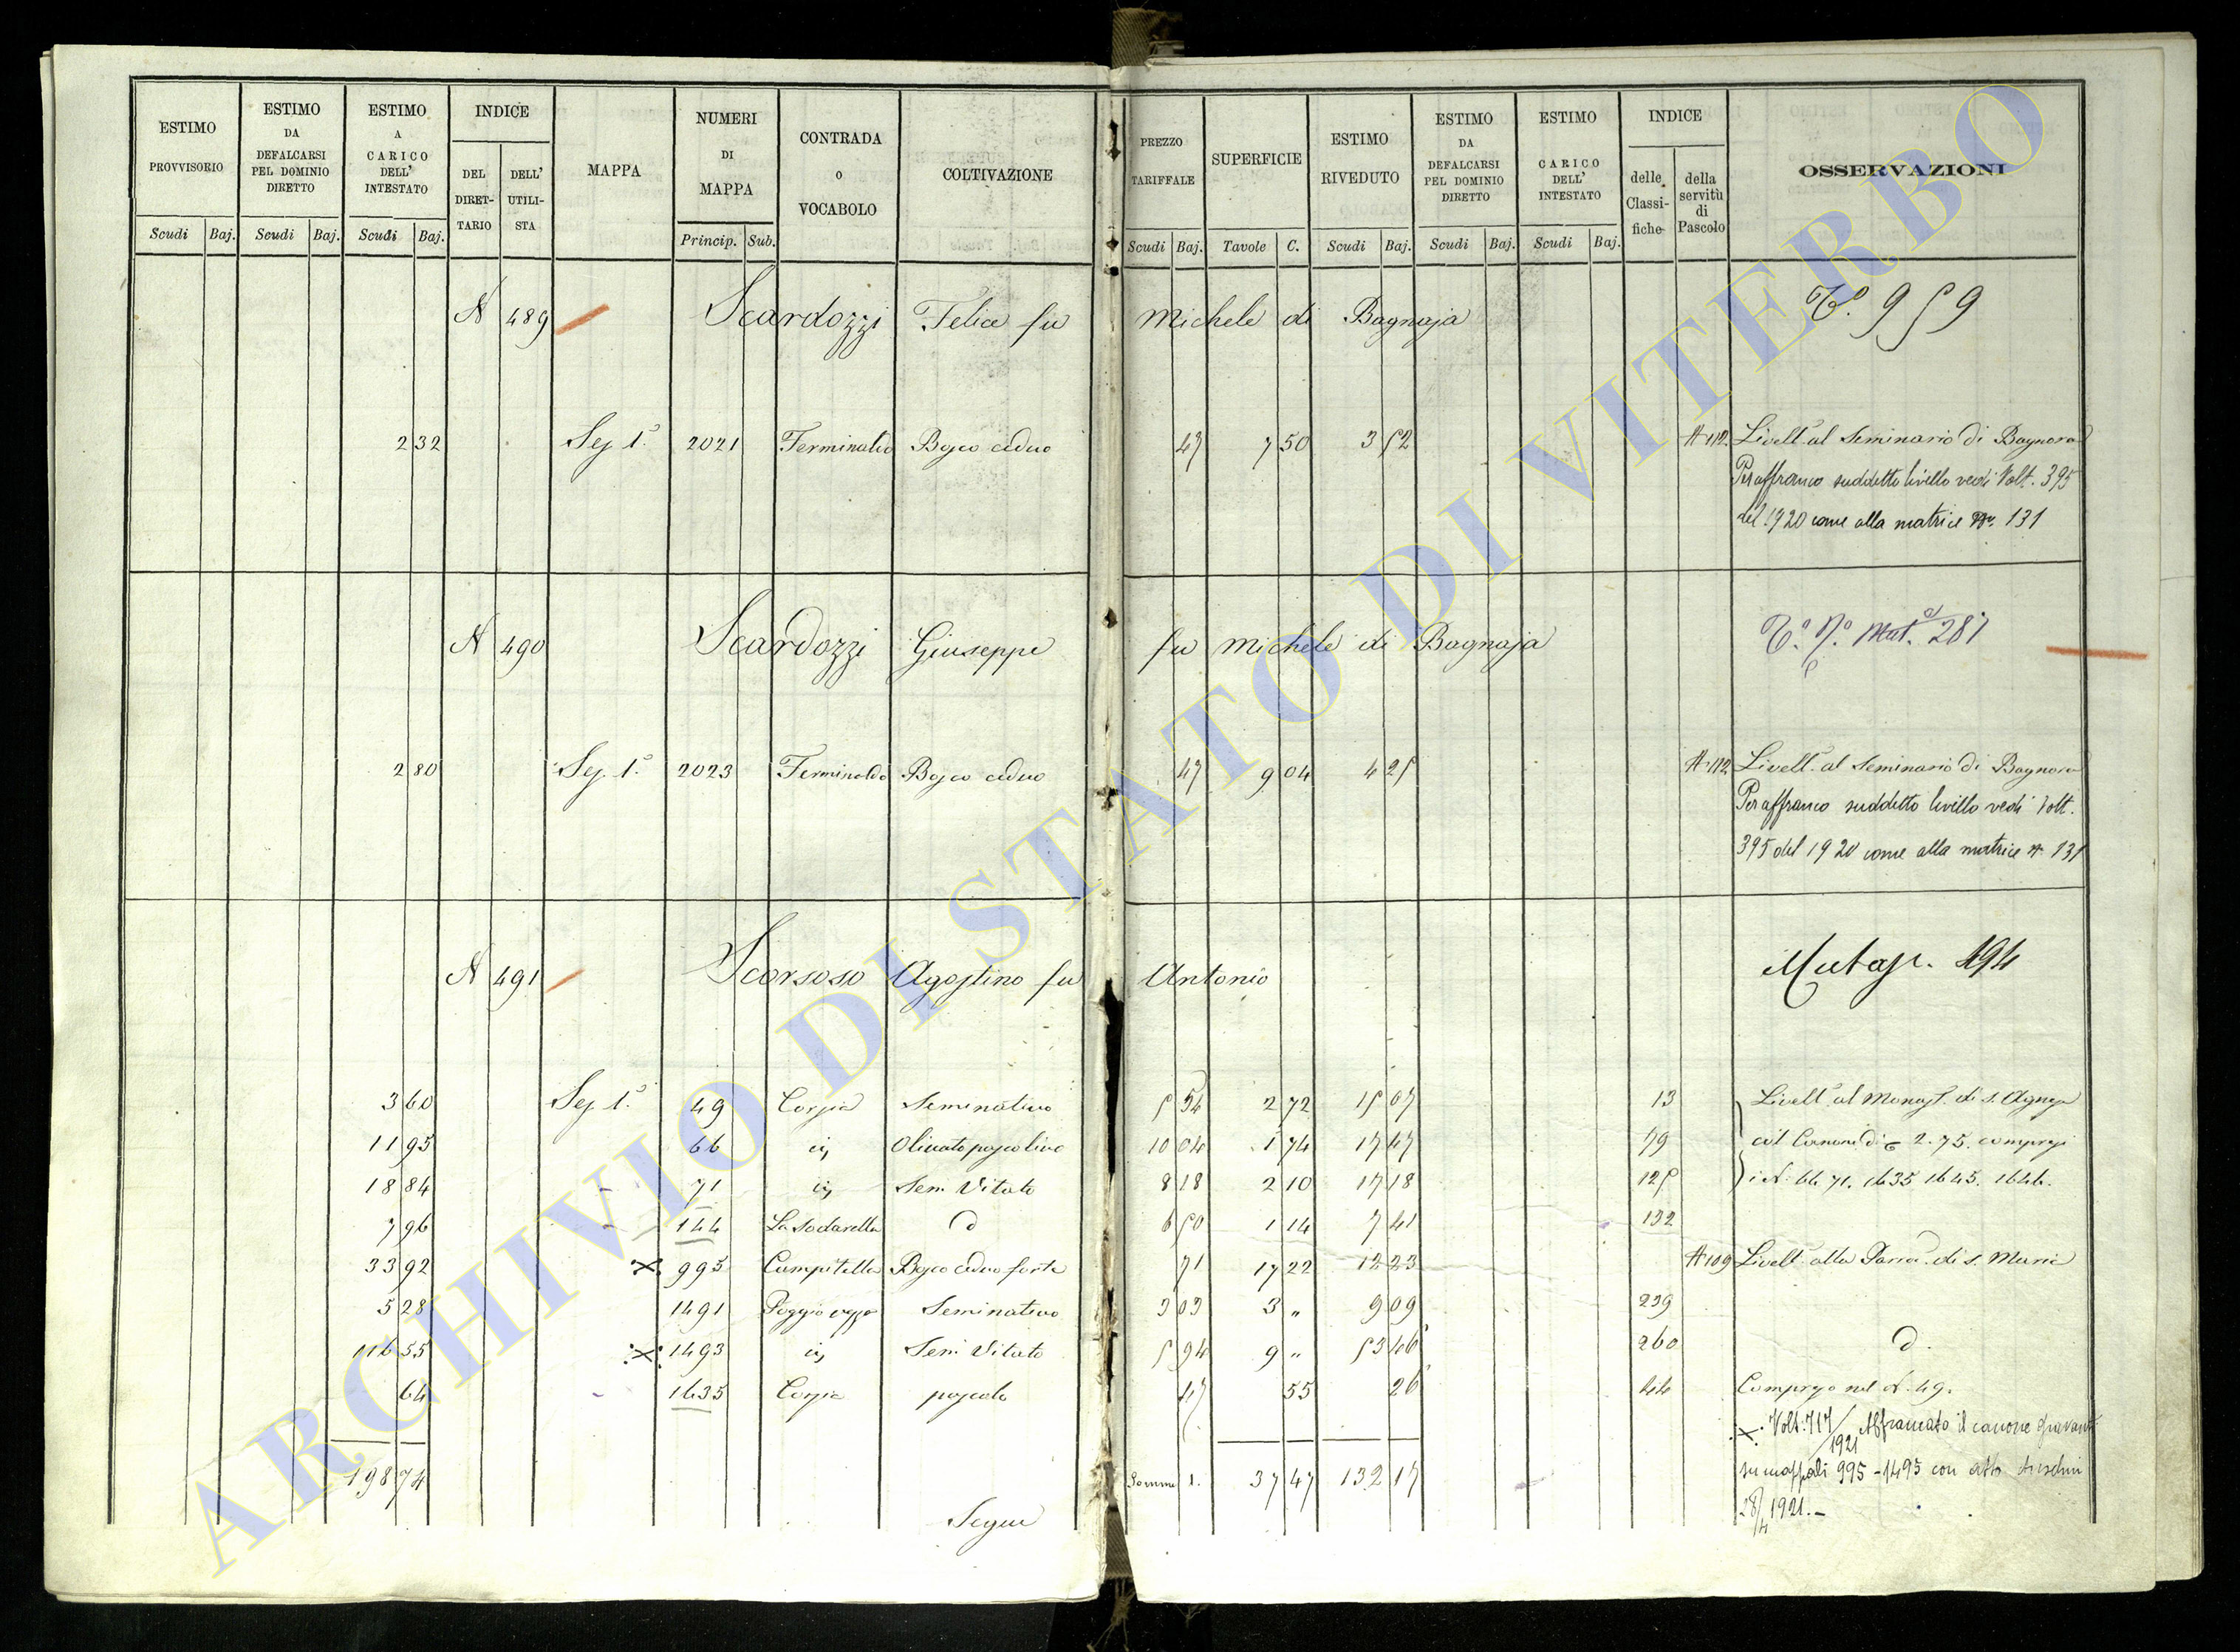 ESTIMO PROVVISORIO Scudi Baj.
ESTIMO DA DEFALCARSI PEL DOMINIO DIRETTO Scudi Baj.
ESTIMO A CARICO DELL' INTESTATO Scudi Baj.
INDICE DEL DIRETTARIO DELL' UTILISTA
MAPPA
NUMERI DI MAPPA Princip. Sub.
CONTRADA O VOCABOLO
COLTIVAZIONE
PREZZO TARIFFALE Scudi Baj.
SUPERFICIE Tavole C.
ESTIMO RIVEDUTO Scudi Baj.
ESTIMO DA DEFALCARSI PEL DOMINIO DIRETTO Scudi Baj.
ESTIMO CARICO DELL' INTESTATO Scudi Baj.
INDICE delle Classifiche della servitù di Pascolo
OSSERVAZIONI
N 489 Scardozzi Felice fu Michele di Bagnaja 959
2 32 Sez 1.a 2021 Bosco ceduo 47 7 50 3 52 N 112 Livell. al Seminario di Bagnorea
Per affranco suddetto livello vedi Volt. 395
del 1920 come alla matrice N. 131
N 490 Scardozzi Giuseppe fu Michele di Bagnaja Mat. 281
2 80 Sez. 1.a 2023 Bosco ceduo 47 9 04 4 25 N 112 Livell. al Seminario di Bagnorea
Per affranco suddetto livello vedi Volt.
395 del 1920 come alla matrice N. 131
N 491 Scorsoso Agostino fu Antonio 494
3 60 Sez 1.a 49 Corzia Seminativo 5 54 2 72 15 07 13 Livell. al Monast. di S. Agnese
11 95 66 Olivato pascolivo 10 04 1 74 17 47 79 2.75. compresi
18 84 71 Sem. Vitato 8 18 2 10 17 18 125 i N. 66 71. 1635 1645. 1646.
7 96 144 La Sodarella d 6 50 1 14 7 41 132
33 92 995 Campitella Bosco ceduo forte 71 17 22 12 23 N 109 Livell. alla Parroc. di S. Maria
5 28 1491 Poggio Seminativo 3 03 3 " 9 09 239
116 55 1493 Sem. Vitato 5 94 9 " 53 46 260 d.
64 1635 Corzia pascolo 47 55 26 44 Compreso nel N. 49.
Volt. 717/1921 Affrancato il canone gravante
su mappali 995 - 1493 con atto
28/4 1921. -
198 74 Somma 1. 37 47 132 17
Segue
ARCHIVIO DI STATO DI VITERBO